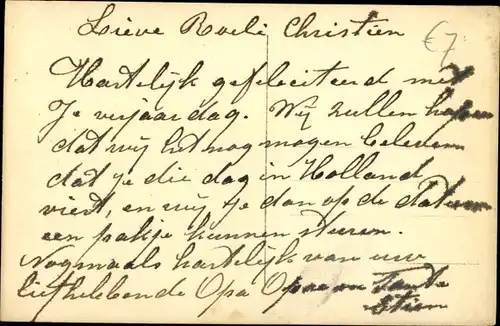 Lieve Roeli Christien
€7
Hartelijk gefeliciteerd met
Je verjaardag. Wij zullen hopen
dat wij het nog mogen beleven
dat je die dag in Holland
viert, en wij je dan op de datum
een pakje kunnen sturen.
Nogmaals hartelijk van uw
liefhebbende Opa Opoe en Tante
Stien